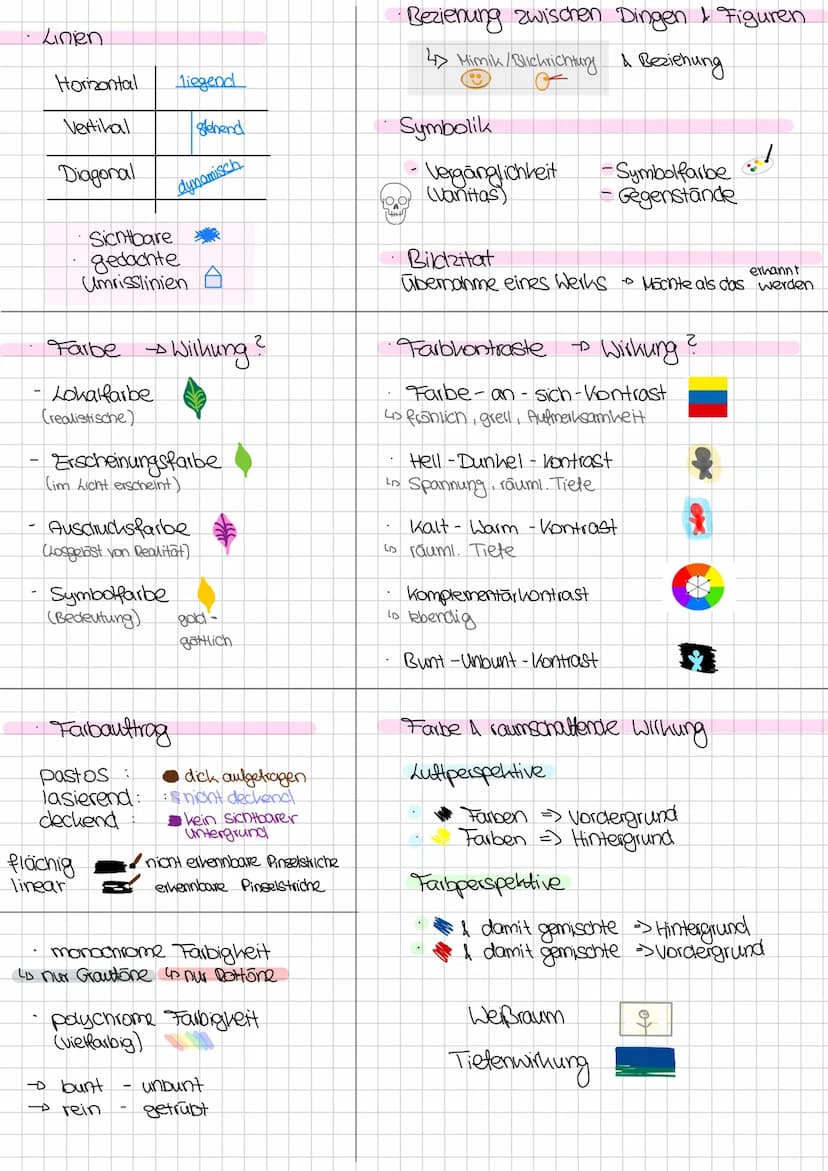 · Linien
Horizontal liegend
Vertikal stehend
Diagonal dynamisch
· Sichtbare
· gedachte
Umrisslinien
· Beziehung zwischen Dingen & Figuren
↳ Mimik/Blickrichtung & Beziehung
· Symbolik
- Vergänglichkeit
(Vanitas)
- Symbolfarbe
- Gegenstände
· Bildzitat
Übernahme eines Werks → Möchte als das erkannt werden
· Farbe → Wirkung?
- Lokalfarbe
(realistische)
- Erscheinungsfarbe
(im Licht erscheint)
- Ausdrucksfarbe
(Losgelöst von Realität)
- Symbolfarbe
(Bedeutung)
gold -
göttlich
· Farbkontraste → Wirkung?
· Farbe-an-sich-Kontrast
↳ fröhlich, grell, Aufmerksamkeit
· Hell-Dunkel-Kontrast
↳ Spannung, räuml. Tiefe
· Kalt-Warm-Kontrast
↳ räuml. Tiefe
· Komplementärkontrast
↳ lebendig
· Bunt-Unbunt-Kontrast
· Farbauftrag
pastos : dick aufgetragen
lasierend : nicht deckend
deckend : kein sichtbarer
Untergrund
flächig nicht erkennbare Pinselstriche
linear erkennbare Pinselstriche
· monochrome Farbigkeit
↳ nur Grautöne ↳ nur Rottöne
· polychrome Farbigkeit
(vielfarbig)
→ bunt - unbunt
→ rein - getrübt
Farbe & raumschaffende Wirkung
Luftperspektive
· Farben => Vordergrund
· Farben => Hintergrund
Farbperspektive
· & damit gemischte => Hintergrund
· & damit gemischte => Vordergrund
Weißraum
Tiefenwirkung